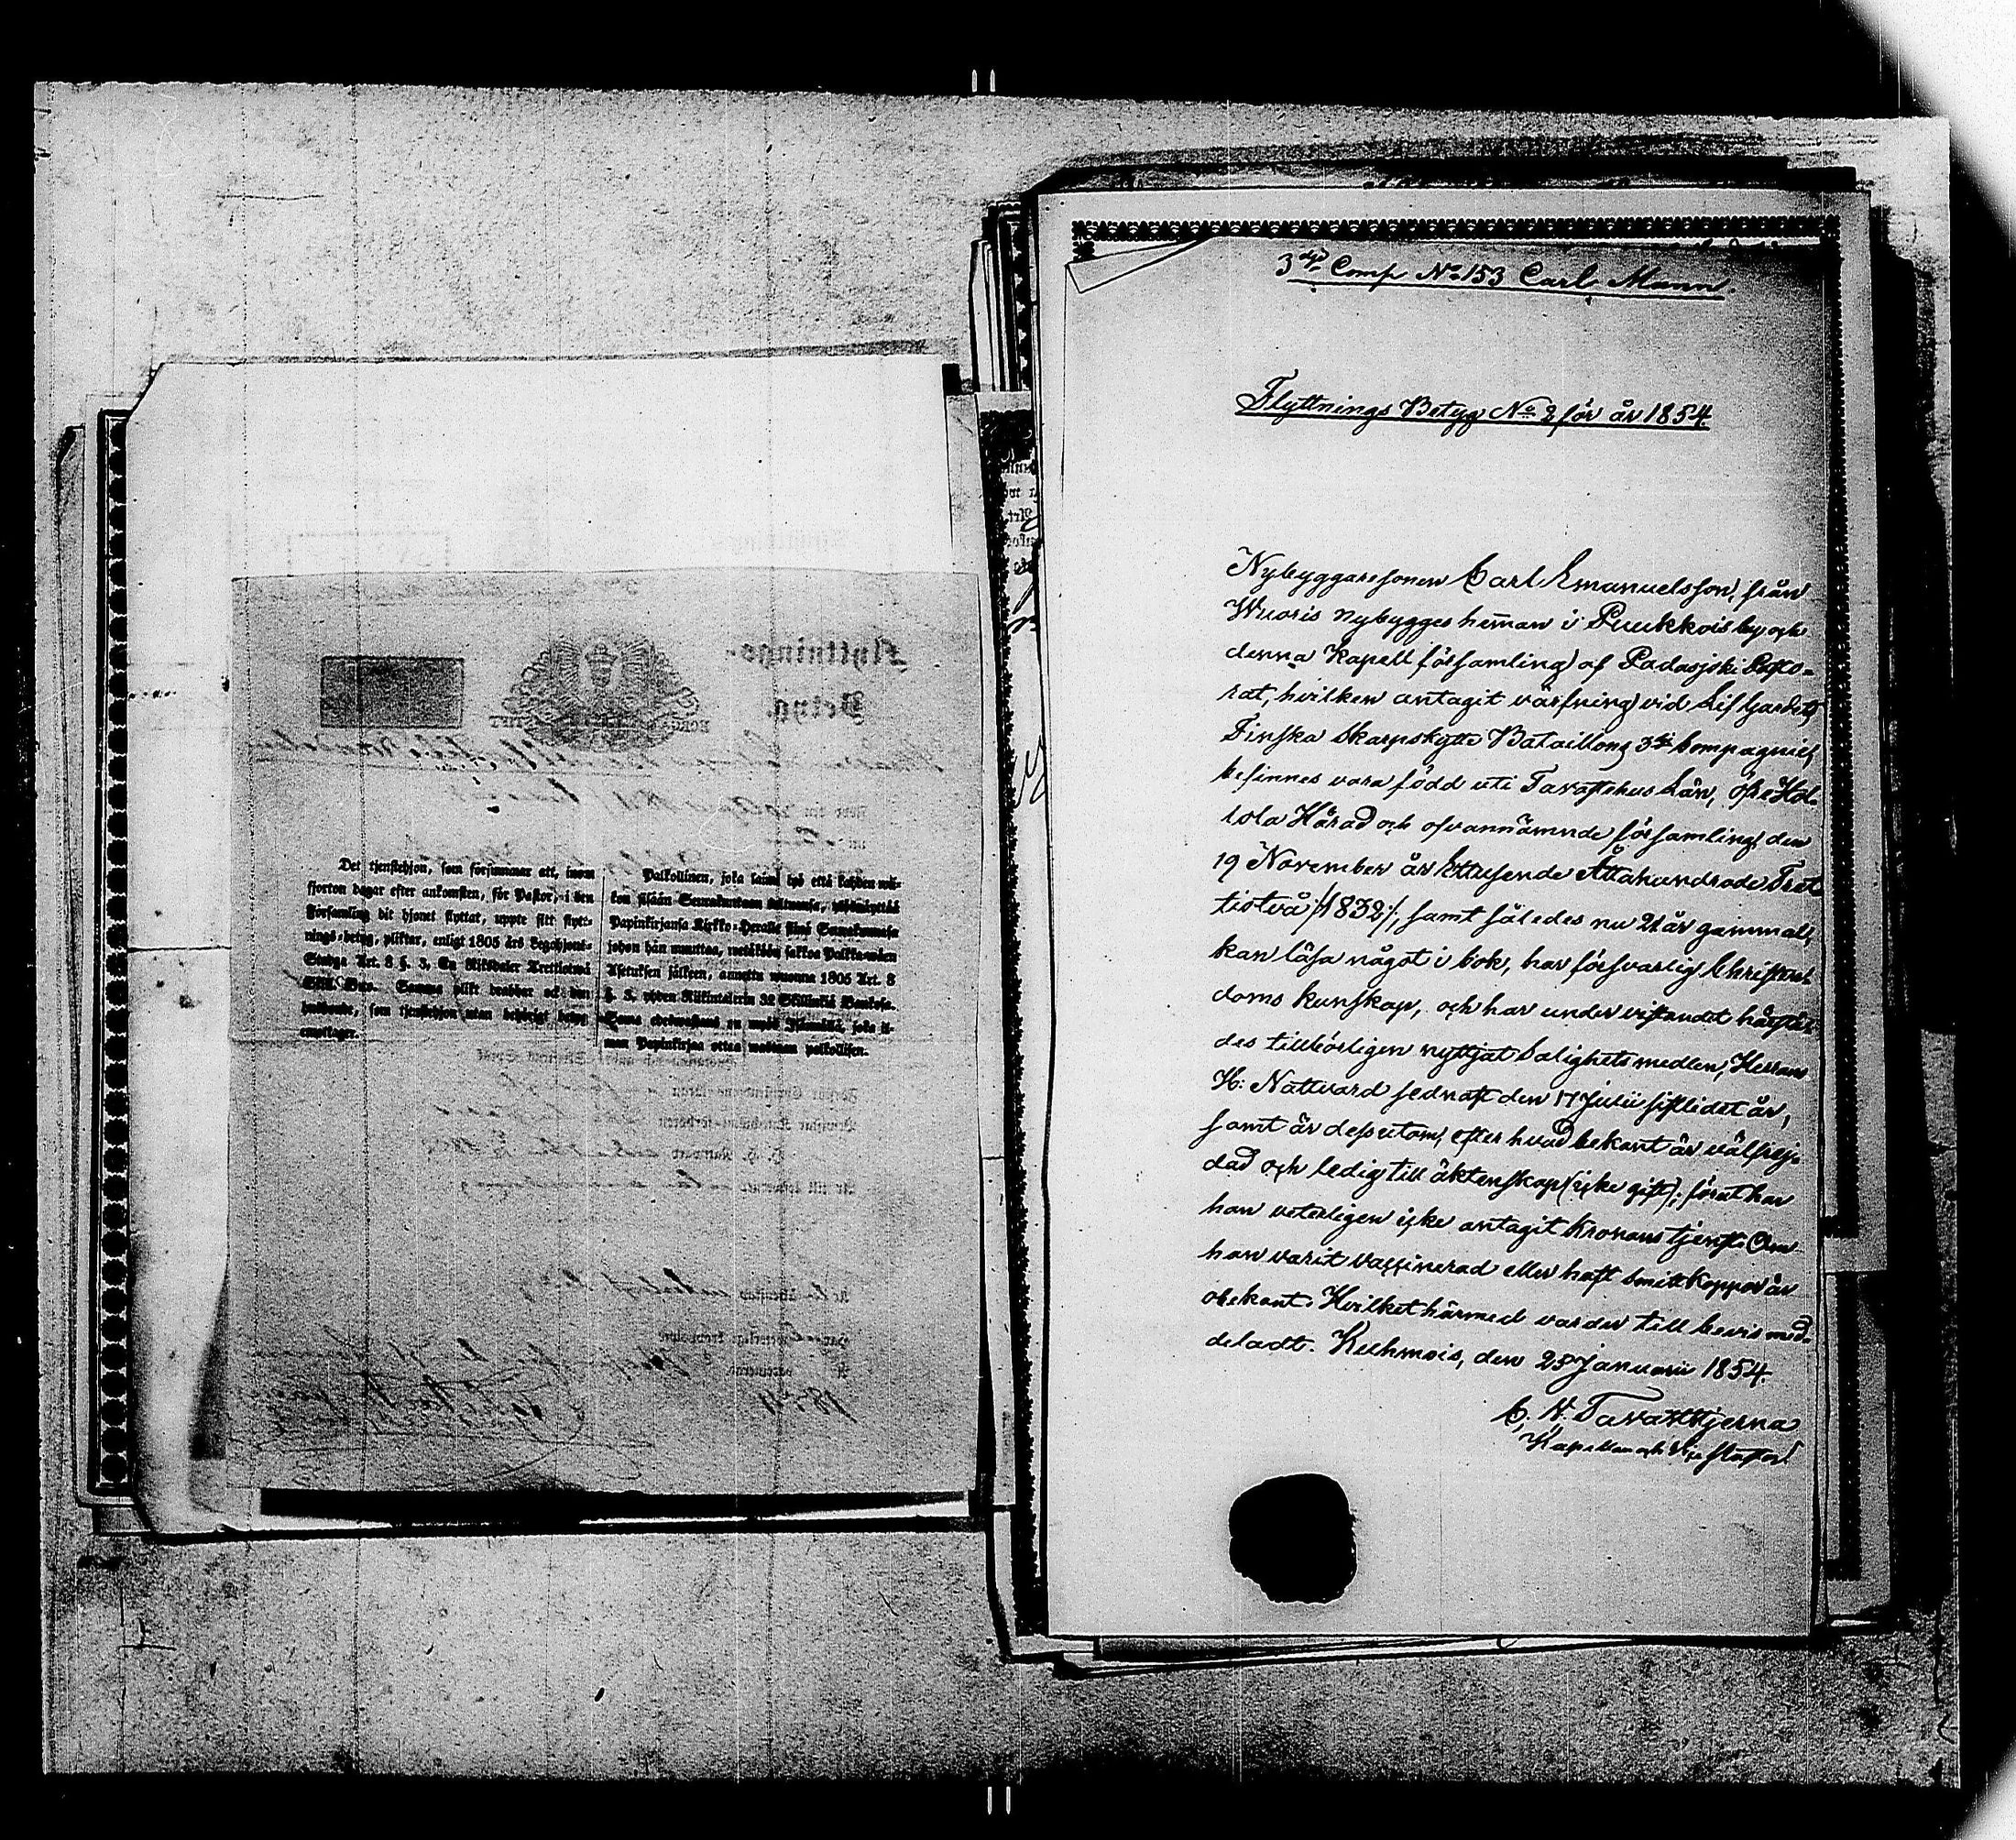 Det tjenstehjon, som försummar att, inom
fjorton dagar efter ankomsten, för Pastor, i den
Församling dit hjonet flyttat, uppte sitt flytt-
nings-betyg, plikter, enligt 1805 års Legohjons-
Stadga Art. 8 §. 3, En Riksdaler Trettiotwå
Skill. Bco. Samma plikt drabbar ock den
husbonde, som tjenstehjon utan behörigt betyg
emottager.
Palkollinen, joka laimi lyö että kahden wii-
kon sisään Seurakuntaan tultuansa, ylösnäyttää
Papinkirjansa Kirkko-Herralle siinä Seurakunnassa
johon hän muuttaa, wetäköön sakkoa Palkka-wäen
Asetuksen jälkeen, annettu wuonna 1805 Art. 8
§. 3, yhden Riikintalerin 32 Skillinkiä Bankosa.
Sama edeswastaus on myös Isännällä, joka il-
man Papinkirjaa ottaa wastaan palkollisen.
3dje Comp No 153 Carl Mann
Flyttnings Betyg No 2 för år 1854.
Nybyggaresonen Carl Emanuelsson, från
Wuoris nybygges hem̄an i Puukkois by och
denna Kapellförsamling af Padasjoki Pasto-
rat, hvilken antagit värfning vid Lif Gardets
Finska Skarpskytte Bataillons 3dje Compagnie,
befinnes vara född uti Tavastehus Län, öfre Hol-
lola Härad och ofvannämnde församling den
19 November år Ettusende Åttahundrade Tret-
tiotvå /:1832:/, samt således nu 21 år gammal,
kan läsa något i bok, har försvarlig Christen-
doms kunskap, och har under vistandet härstä-
des tillbörligen nyttjat Salighetsmedlen, Herrans
H: Nattvard sednast den 17 Julii sistlidet år,
samt är dessutom, efter hvad bekant är välfrej-
dad och ledig till äktenskap (icke gift); förut har
han veterligen icke antagit Kronans tjenst. Om
han varit vaccinerad eller haft Smittkoppor är
obekant. Hvilket härmed varder till bevis med-
deladt. Kuhmois, den 23 Januarii 1854.
C. N. Tavaststjerna
Kapellan och Vice Pastor.